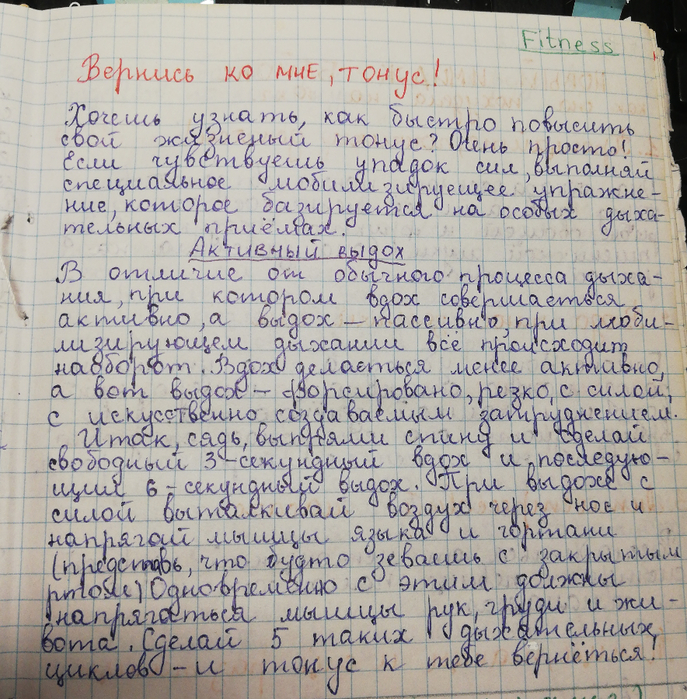 Fitness
Вернись ко мне, тонус!
Хочешь узнать, как быстро повысить
свой жизненый тонус? Очень просто!
Если чувствуешь упадок сил, выполняй
специальное мобилизируещее упражне-
ние, которое базируется на особых дыха-
тельных приёмах.
Активный выдох
В отличие от обычного процесса дыха-
ния, при котором вдох совершаеться
активно, а выдох - пассивно, при моби-
лизирующем дыхании всё происходит
наоборот. Вдох делаеться менее активно,
а вот выдох - форсировано, резко, с силой,
с искусственно создаваемым затруднением.
Итак, сядь, выпрями спину и сделай
свободный 3-секундный вдох и последую-
щий 6-секундный выдох. При выдохе с
силой выталкивай воздух через нос и
напрягай мышцы языка и гортани
(представь, что будто зеваешь с закрытым
ртом) Одновременно с этим должны
напрягаться мышцы рук, груди и жи-
вота. Сделай 5 таких дыхательных
циклов - и тонус к тебе вернёться!